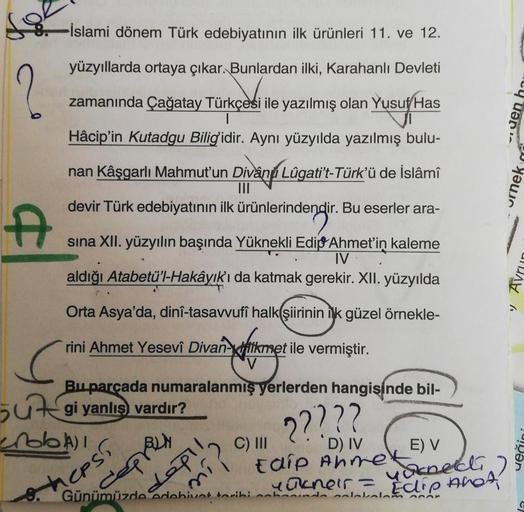 8. İslami dönem Türk edebiyatının ilk ürünleri 11. ve 12.
yüzyıllarda ortaya çıkar. Bunlardan ilki, Karahanlı Devleti
?
zamanında Çağatay Türkçesi ile yazılmış olan Yusuf Has
I II
Hâcip'in Kutadgu Bilig'idir. Aynı yüzyılda yazılmış bulu-
nan Kâşgarlı Mahmut'un Divânü Lûgati't-Türk'ü de İslâmî
III
devir Türk edebiyatının ilk ürünlerindendir. Bu eserler ara-
?
A
sına XII. yüzyılın başında Yüknekli Edip Ahmet'in kaleme
IV
aldığı Atabetü'l-Hakâyık'ı da katmak gerekir. XII. yüzyılda
Orta Asya'da, dinî-tasavvufî halk şiirinin ilk güzel örnekle-
rini Ahmet Yesevî Divan-ı Hikmet ile vermiştir.
V
Bu parçada numaralanmış yerlerden hangisinde bil-
gi yanlışı vardır?
?????
A) I B) II C) III D) IV E) V
hepsi doğru değil mi?
Edip Ahmet Yükneki
= Edip Ahmet
9. Günümüzde edebiyat tarihi
örnek